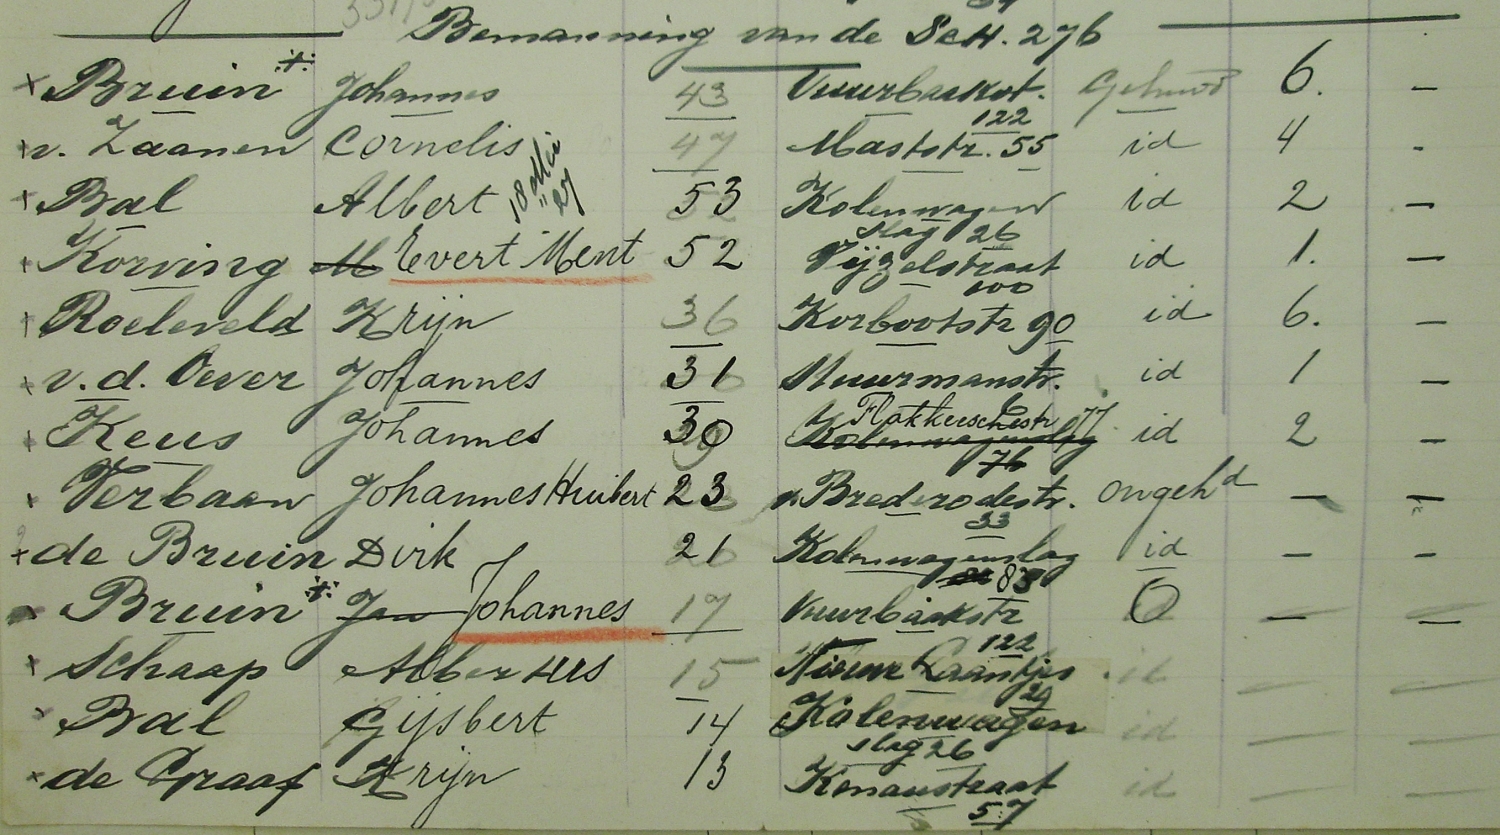 Bemanning van de Sch. 276
Bruin Johannes 43 Vuurbaakst. 122 Gehuwd 6. -
v. Zaanen Cornelis 47 Maststr. 55 id 4 -
Bal Albert 53 Kolenwagenslag 26 id 2 -
Korving M Evert Ment 52 Vijzelstraat 100 id 1. -
Roeleveld Krijn 36 Korbootstr 90 id 6. -
v.d. Oever Johannes 31 Stuurmanstr. 6 id 1 -
Keus Johannes 30 Flakkeeschestr 77 Kolenwagenslag 76 id 2 -
Verbaan Johannes Huibert 23 v. Brederodestr. 33 ongehd - -
de Bruin Dirk 21 Kolenwagenslag 83 id - -
Bruin Jan Johannes 17 Vuurbaakstr 122 O - -
Schaap Albertus 15 Nieuwe Laantjes 29 id - -
Bal Gijsbert 14 Kolenwagen slag 26 id - -
de Graaf Krijn 13 Kenaustraat 57 id - -